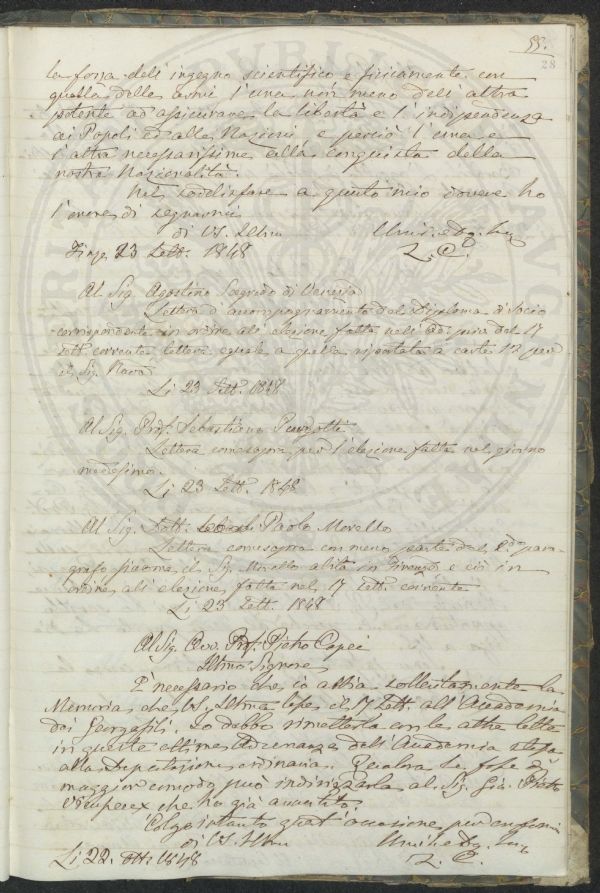 55.
28
la forza dell'ingegno scientifico e fisicamente con
quella delle armi l'una non meno dell'altra
potente ad assicurare la libertà e l'indipendenza
ai Popoli ed alle Nazioni e perciò l'una e
l'altra necessarissime alla conquista della
nostra Nazionalità.
Nel sodisfare a questo mio dovere ho
l'onore di segnarmi
di VS. Illma
23 Sett. 1848
L. C.
Al Sig. Agostino Sagredo di Venezia
Lettera d'accompagnamento del Diploma di Socio
corrispondente in ordine all'elezione fatta nell' del 17
Sett. corrente, lettera eguale a quella riportata a carte 12 per
il Sig.
Li 23 Sett. 1848
Al Sig. Prof. Sebastiano
Lettera come sopra per l'elezione fatta nel giorno
medesimo.
Li 23 Sett. 1848
Al Sig. Dott. Paolo Morello
Lettera come sopra con meno parte del 2do para-
grafo poichè il Sig. Morello abita in Firenze e ciò in
ordine all'elezione fatta nel 17 Sett. corrente
Li 23 Sett. 1848
Al Sig. Avv. Prof. Pietro Capei
Illmo Signore
È necessario che io abbia sollecitamente la
Memoria che VS. Illma lesse il 17 Sett. all'Accademia
dei Georgofili. Io debbo rimetterla con le altre lette
in queste ultime Adunanze dell'Accademia stessa
alla Deputazione ordinaria. Qualora Le fosse di
maggior comodo può indirizzarla al Sig. Gio. Pietro
Vieusseux che ho già avvertito.
Colgo intanto quest'occasione per confermarmi
di VS. Illma
Li 22. 1848
L. C.